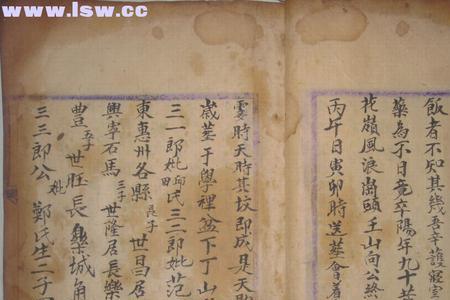 www.lsw.cc
飯者不知其幾吾辛護寢室
藥為不日竟卒陽年九十
花嶺風浪崗頭壬山向公終
丙午日寅卯時送葬會着
霎時天時其坟即成是天
歲葬于學裡盆下丁山
三一郎妣邱氏三二郎妣范
東惠州各縣長子世曰居
興寧石馬三子世隆居長樂
豊五子世胜長樂城角
三三郎公妣鄭氏生二子
www.lsw.cc